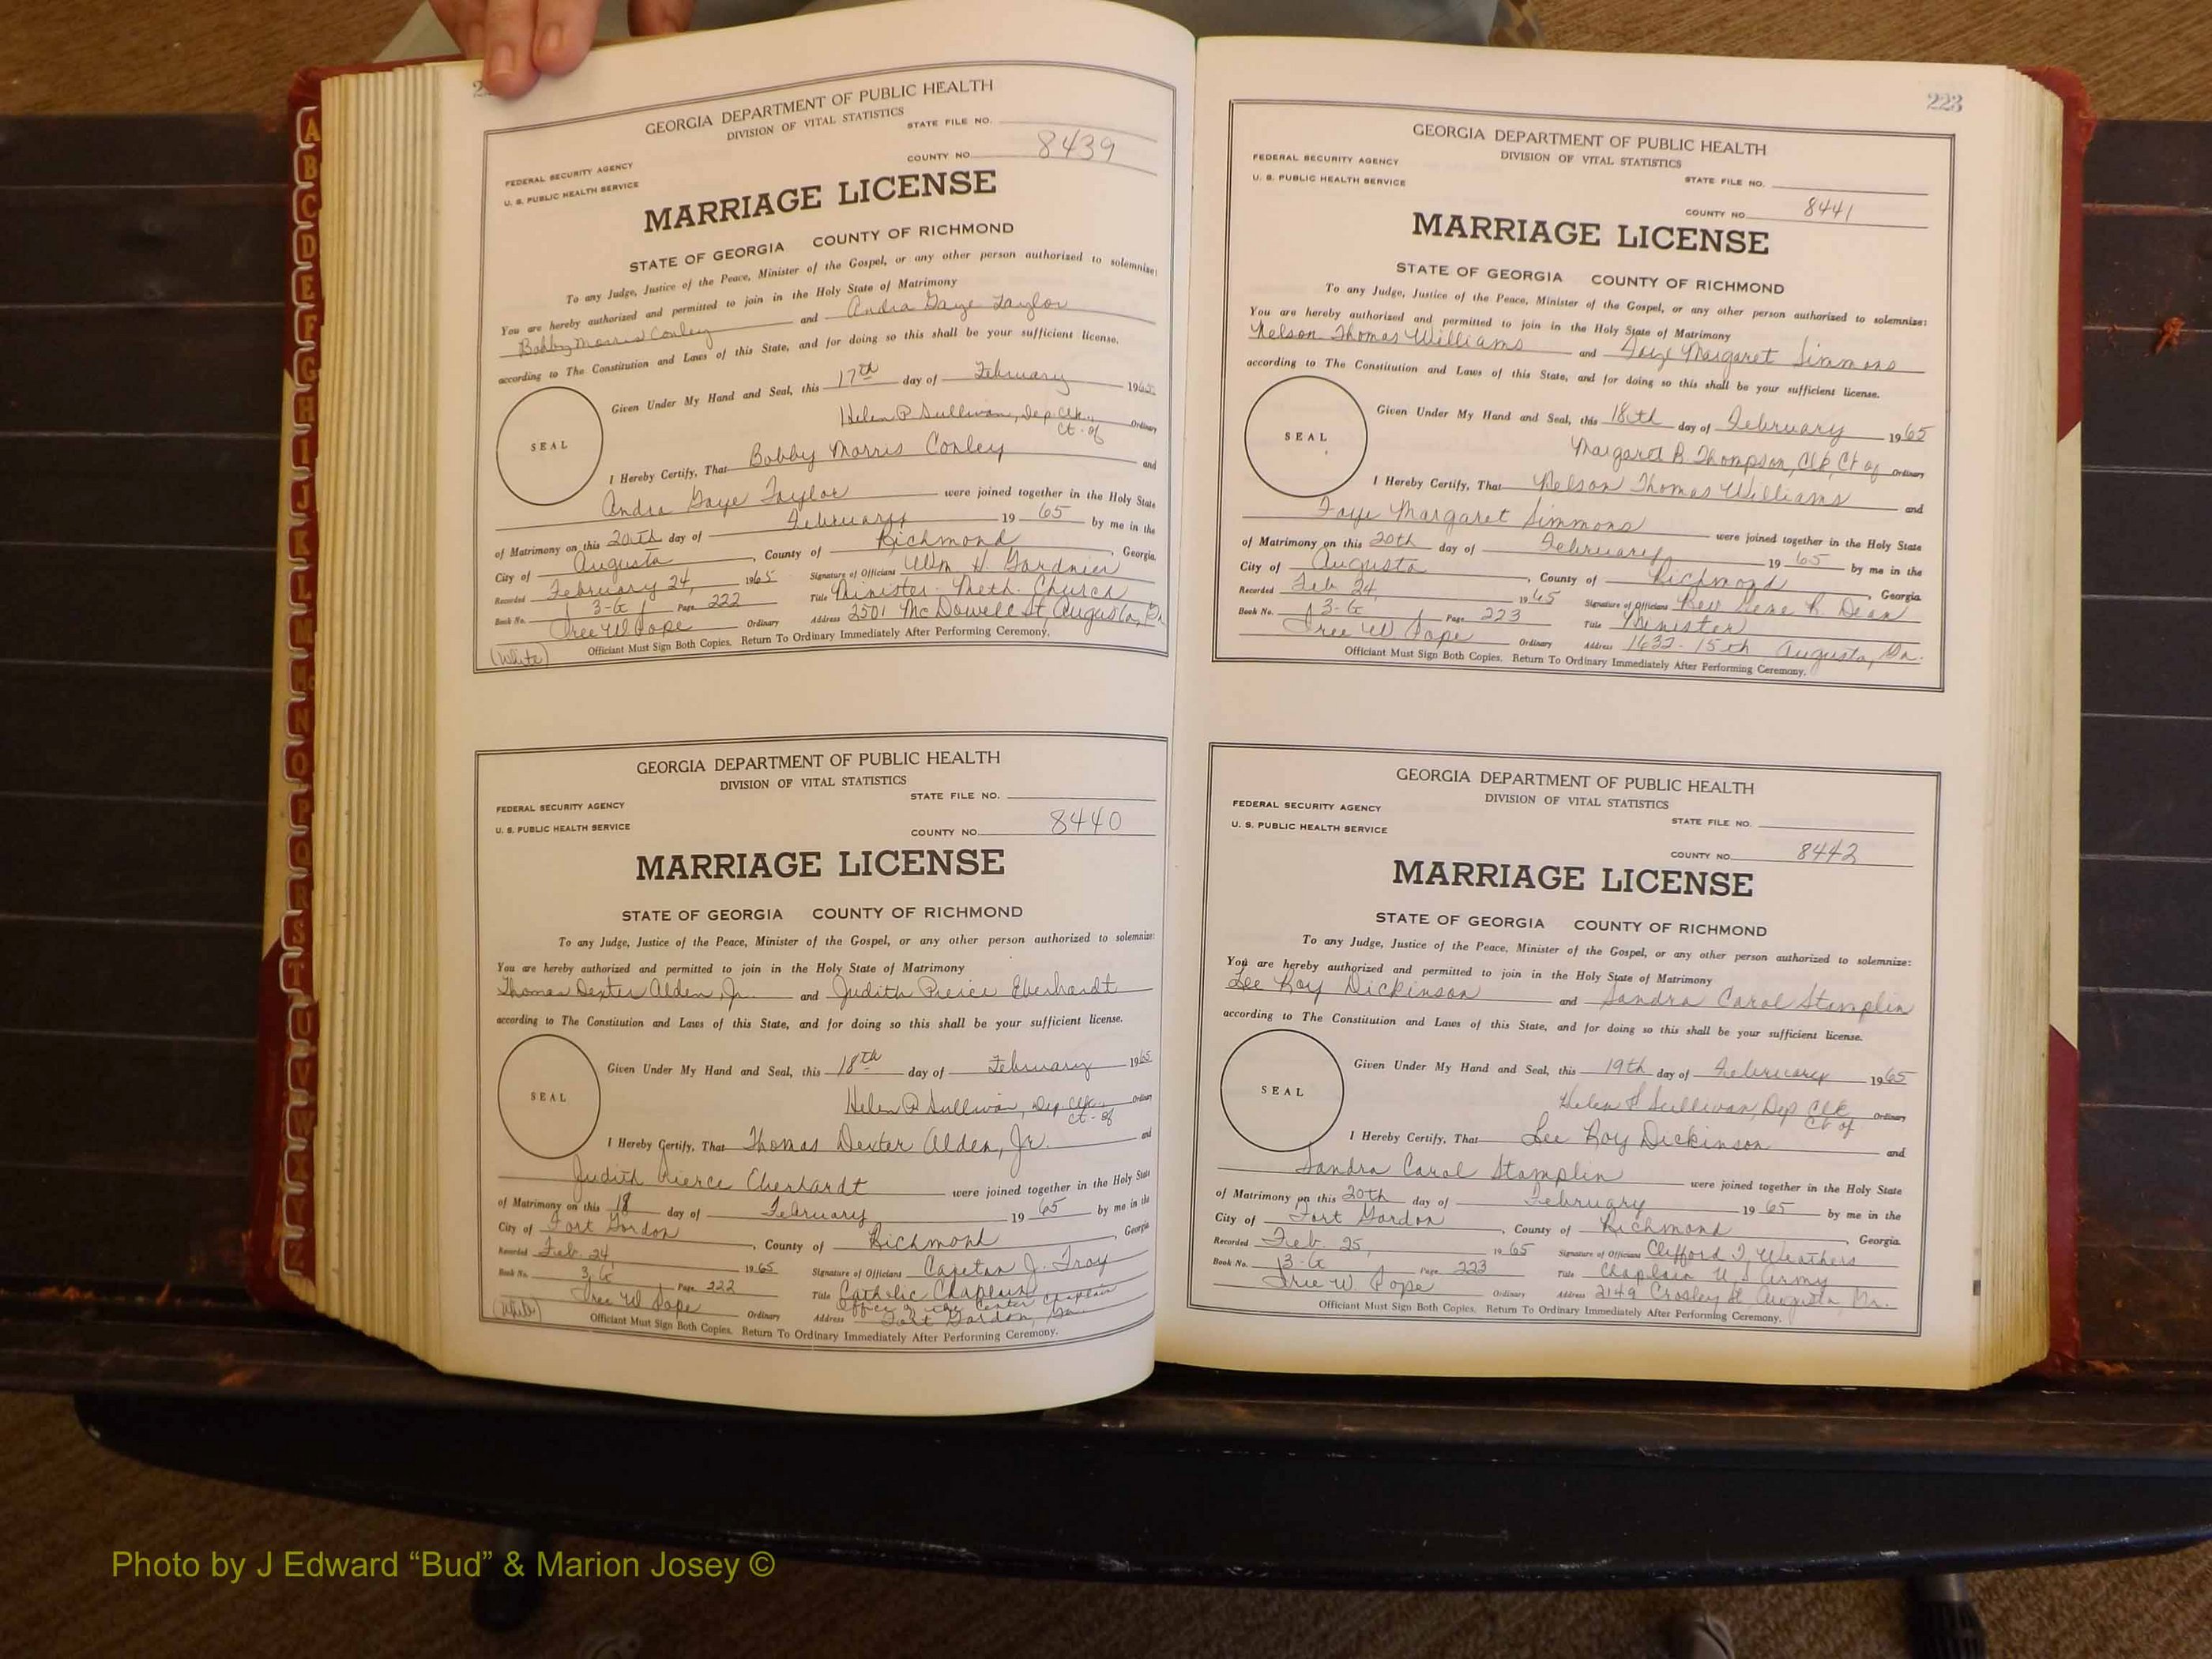 GEORGIA DEPARTMENT OF PUBLIC HEALTH
DIVISION OF VITAL STATISTICS
STATE FILE NO.
FEDERAL SECURITY AGENCY
COUNTY NO. 8439
U. S. PUBLIC HEALTH SERVICE
MARRIAGE LICENSE
STATE OF GEORGIA COUNTY OF RICHMOND
To any Judge, Justice of the Peace, Minister of the Gospel, or any other person authorized to solemnize:
You are hereby authorized and permitted to join in the Holy State of Matrimony
Bobby Morris Conley and Andra Gaye Taylor
according to The Constitution and Laws of this State, and for doing so this shall be your sufficient license.
SEAL
Given Under My Hand and Seal, this 17th day of February 1965
Helen P Sullivan, Dep Clk. Ct. of Ordinary
I Hereby Certify, That Bobby Morris Conley and
Andra Gaye Taylor were joined together in the Holy State
of Matrimony on this 20th day of February 19 65 by me in the
City of Augusta, County of Richmond, Georgia.
Recorded February 24, 1965 Signature of Officians Wm H. Gardnier
Book No. 3-G Page 222 Title Minister - Meth. Church
Iree W Pope Ordinary Address 2501 McDowell St, Augusta, Ga
(White) Officiant Must Sign Both Copies. Return To Ordinary Immediately After Performing Ceremony.
GEORGIA DEPARTMENT OF PUBLIC HEALTH
DIVISION OF VITAL STATISTICS
STATE FILE NO.
FEDERAL SECURITY AGENCY
U. S. PUBLIC HEALTH SERVICE
COUNTY NO. 8440
MARRIAGE LICENSE
STATE OF GEORGIA COUNTY OF RICHMOND
To any Judge, Justice of the Peace, Minister of the Gospel, or any other person authorized to solemnize:
You are hereby authorized and permitted to join in the Holy State of Matrimony
Thomas Dexter Alden, Jr. and Judith Pierce Eberhardt
according to The Constitution and Laws of this State, and for doing so this shall be your sufficient license.
SEAL
Given Under My Hand and Seal, this 18th day of February 1965
Helen P Sullivan, Dep Clk. Ct. of Ordinary
I Hereby Certify, That Thomas Dexter Alden, Jr. and
Judith Pierce Eberhardt were joined together in the Holy State
of Matrimony on this 18 day of February 19 65 by me in the
City of Fort Gordon, County of Richmond, Georgia
Recorded Feb. 24 1965 Signature of Officians Capetan J. Troy
Book No. 3-G Page 222 Title Catholic Chaplain
Office of the Center Chaplain
Iree W Pope Ordinary Address Fort Gordon, Ga.
(White) Officiant Must Sign Both Copies. Return To Ordinary Immediately After Performing Ceremony.
223
GEORGIA DEPARTMENT OF PUBLIC HEALTH
DIVISION OF VITAL STATISTICS
FEDERAL SECURITY AGENCY
U. S. PUBLIC HEALTH SERVICE
STATE FILE NO.
COUNTY NO. 8441
MARRIAGE LICENSE
STATE OF GEORGIA COUNTY OF RICHMOND
To any Judge, Justice of the Peace, Minister of the Gospel, or any other person authorized to solemnize:
You are hereby authorized and permitted to join in the Holy State of Matrimony
Nelson Thomas Williams and Faye Margaret Simmons
according to The Constitution and Laws of this State, and for doing so this shall be your sufficient license.
SEAL
Given Under My Hand and Seal, this 18th day of February 1965
Margaret B. Thompson, Clk, Ct of Ordinary
I Hereby Certify, That Nelson Thomas Williams and
Faye Margaret Simmons were joined together in the Holy State
of Matrimony on this 20th day of February 19 65 by me in the
City of Augusta, County of Richmond, Georgia.
Recorded Feb 24, 1965 Signature of Officians Rev Gene R. Dean
Book No. 3-G Page 223 Title Minister
Iree W Pope Ordinary Address 1632-15th Augusta, Ga.
Officiant Must Sign Both Copies. Return To Ordinary Immediately After Performing Ceremony.
GEORGIA DEPARTMENT OF PUBLIC HEALTH
DIVISION OF VITAL STATISTICS
FEDERAL SECURITY AGENCY
U. S. PUBLIC HEALTH SERVICE
STATE FILE NO.
COUNTY NO. 8442
MARRIAGE LICENSE
STATE OF GEORGIA COUNTY OF RICHMOND
To any Judge, Justice of the Peace, Minister of the Gospel, or any other person authorized to solemnize:
You are hereby authorized and permitted to join in the Holy State of Matrimony
Lee Roy Dickinson and Sandra Carol Stamplin
according to The Constitution and Laws of this State, and for doing so this shall be your sufficient license.
SEAL
Given Under My Hand and Seal, this 19th day of February 1965
Helen P Sullivan, Dep Clk Ct of Ordinary
I Hereby Certify, That Lee Roy Dickinson and
Sandra Carol Stamplin were joined together in the Holy State
of Matrimony on this 20th day of February 19 65 by me in the
City of Fort Gordon, County of Richmond, Georgia.
Recorded Feb. 25, 1965 Signature of Officians Clifford T, Weathers
Book No. 3-G Page 223 Title Chaplain U, S Army
Iree W. Pope Ordinary Address 2149 Crosley St Augusta, Ga.
Officiant Must Sign Both Copies. Return To Ordinary Immediately After Performing Ceremony.
A
B
C
D
E
F
G
H
I
J
K
L
M
Mc
N
O
P
Q
R
S
T
U
V
W
X
Y
Z
Photo by J Edward “Bud” & Marion Josey ©